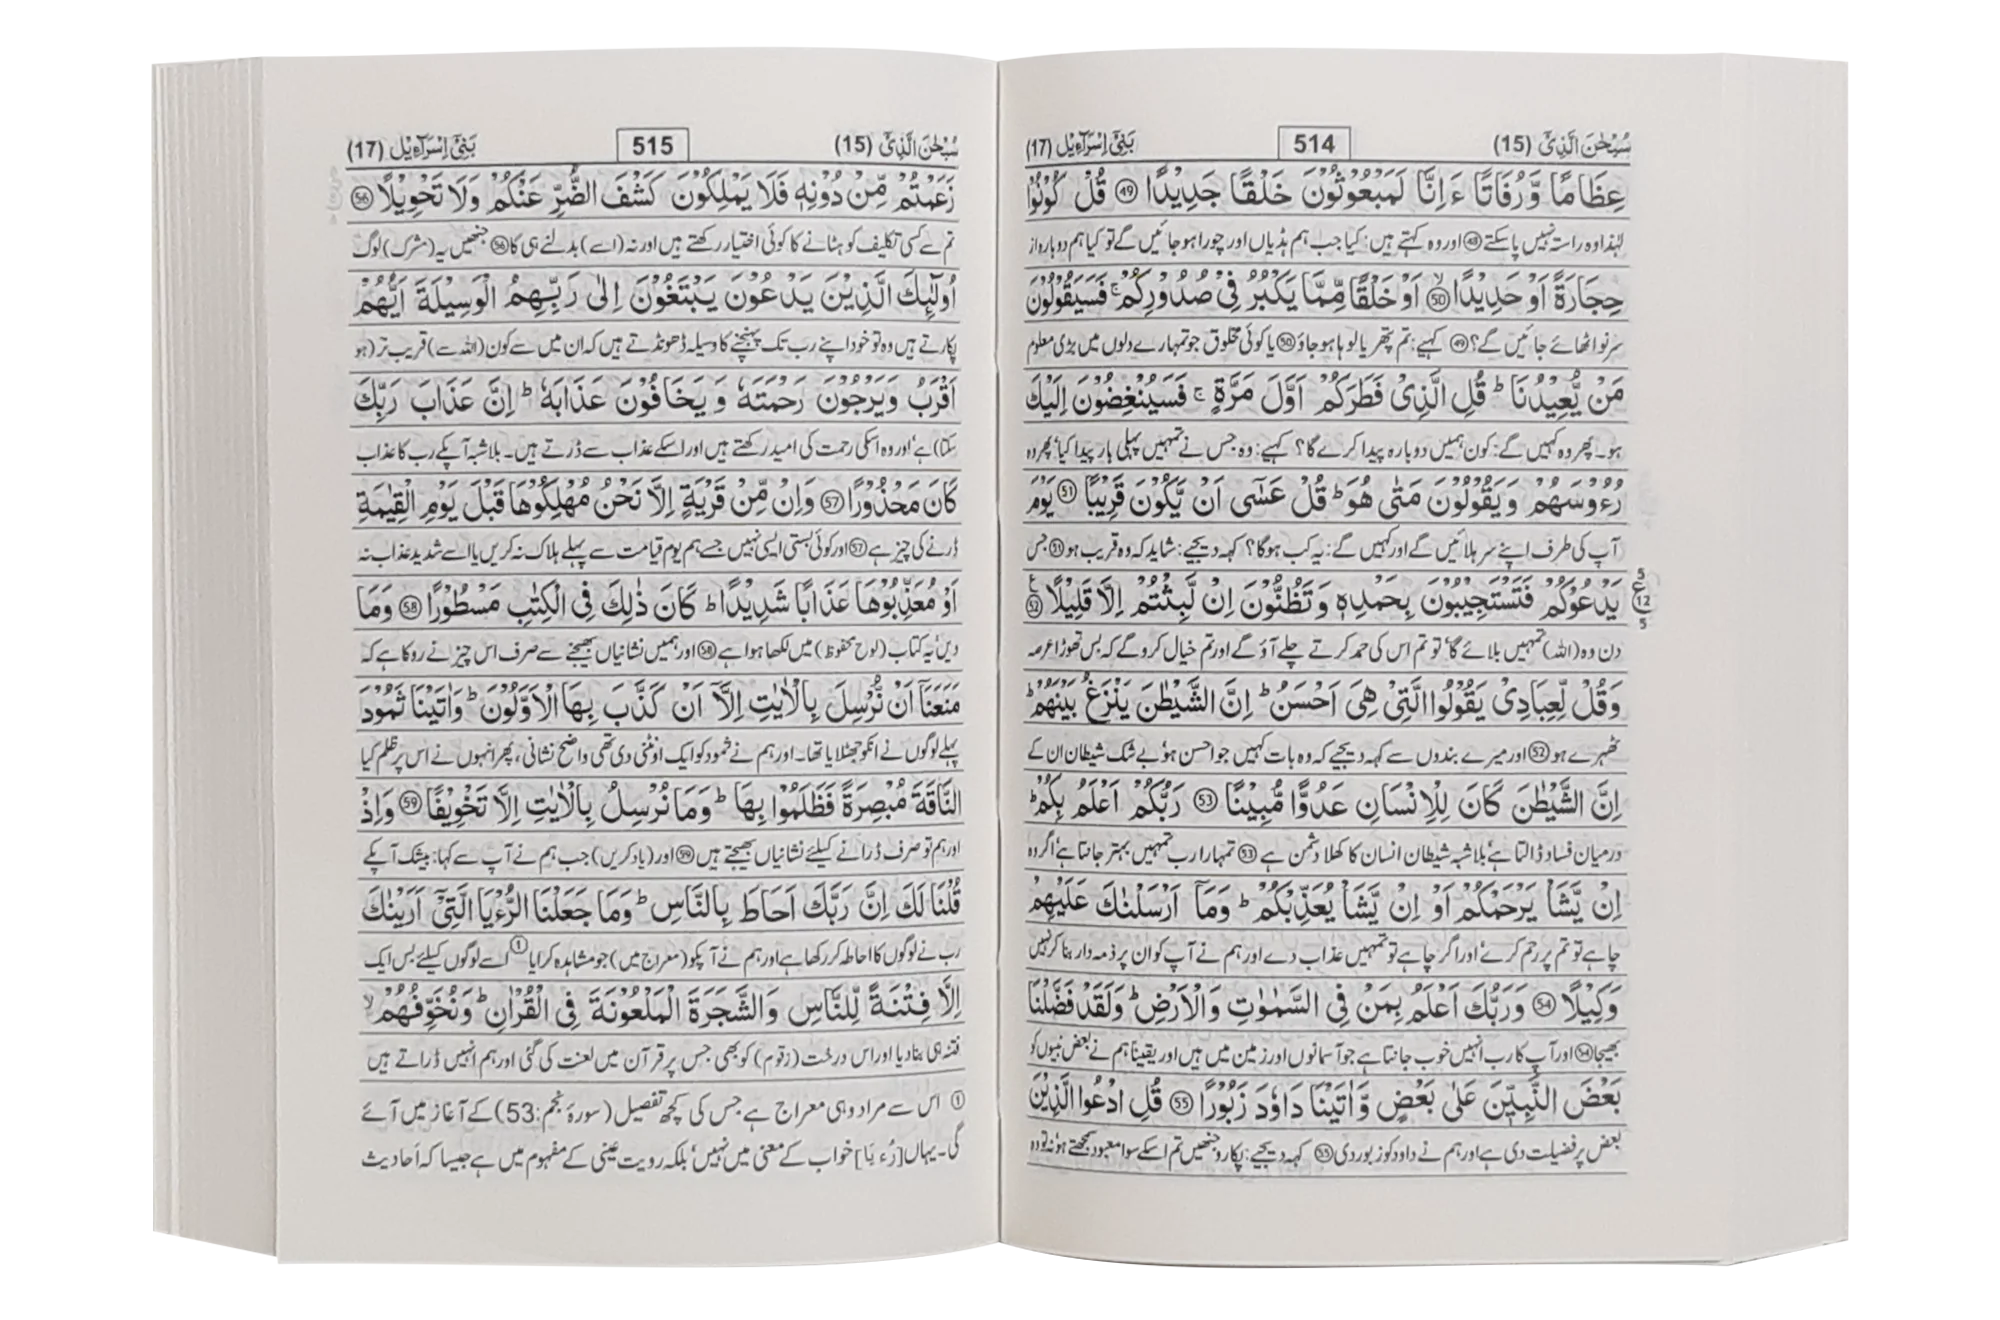 سُبْحٰنَ الَّذِیْۤ (15)
514
بَنِیْۤ اِسْرَآءِیْل (17)
عِظَامًا وَّرُفَاتًا ءَاِنَّا لَمَبْعُوْثُوْنَ خَلْقًا جَدِیْدًا ﴿49﴾ قُلْ كُوْنُوْا
لہٰذا وہ راستہ نہیں پا سکتے ﴿48﴾ اور وہ کہتے ہیں: کیا جب ہم ہڈیاں اور چورا ہو جائیں گے تو کیا ہم دوبارہ از
حِجَارَةً اَوْ حَدِیْدًا ﴿50﴾ اَوْ خَلْقًا مِّمَّا یَكْبُرُ فِیْ صُدُوْرِكُمْ ۚ فَسَیَقُوْلُوْنَ
سر نو اٹھائے جائیں گے؟ ﴿49﴾ کہیے: تم پتھر یا لوہا ہو جاؤ ﴿50﴾ یا کوئی مخلوق جو تمہارے دلوں میں بڑی معلوم
مَنْ یُّعِیْدُنَا ؕ قُلِ الَّذِیْ فَطَرَكُمْ اَوَّلَ مَرَّةٍ ۚ فَسَیُنْغِضُوْنَ اِلَیْكَ
ہو۔ پھر وہ کہیں گے: کون ہمیں دوبارہ پیدا کرے گا؟ کہیے: وہ جس نے تمہیں پہلی بار پیدا کیا، پھر وہ
رُءُوْسَهُمْ وَیَقُوْلُوْنَ مَتٰی هُوَ ؕ قُلْ عَسٰۤی اَنْ یَّكُوْنَ قَرِیْبًا ﴿51﴾ یَوْمَ
آپ کی طرف اپنے سر ہلائیں گے اور کہیں گے: یہ کب ہوگا؟ کہہ دیجیے: شاید کہ وہ قریب ہو ﴿51﴾ جس
یَدْعُوْكُمْ فَتَسْتَجِیْبُوْنَ بِحَمْدِهٖ وَتَظُنُّوْنَ اِنْ لَّبِثْتُمْ اِلَّا قَلِیْلًا ﴿52﴾ ع
5
12
5
دن وہ (اللہ) تمہیں بلائے گا، تو تم اس کی حمد کرتے چلے آؤ گے اور تم خیال کرو گے کہ بس تھوڑا عرصہ
وَقُلْ لِّعِبَادِیْ یَقُوْلُوا الَّتِیْ هِیَ اَحْسَنُ ؕ اِنَّ الشَّیْطٰنَ یَنْزَغُ بَیْنَهُمْ ؕ
ٹھہرے ہو ﴿52﴾ اور میرے بندوں سے کہہ دیجیے کہ وہ بات کہیں جو احسن ہو، بے شک شیطان ان کے
اِنَّ الشَّیْطٰنَ كَانَ لِلْاِنْسَانِ عَدُوًّا مُّبِیْنًا ﴿53﴾ رَبُّكُمْ اَعْلَمُ بِكُمْ ؕ
درمیان فساد ڈالتا ہے، بلاشبہ شیطان انسان کا کھلا دشمن ہے ﴿53﴾ تمہارا رب تمہیں بہتر جانتا ہے، اگر وہ
اِنْ یَّشَاْ یَرْحَمْكُمْ اَوْ اِنْ یَّشَاْ یُعَذِّبْكُمْ ؕ وَمَاۤ اَرْسَلْنٰكَ عَلَیْهِمْ
چاہے تو تم پر رحم کرے، اور اگر چاہے تو تمہیں عذاب دے اور ہم نے آپ کو ان پر ذمہ دار بنا کر نہیں
وَكِیْلًا ﴿54﴾ وَرَبُّكَ اَعْلَمُ بِمَنْ فِی السَّمٰوٰتِ وَالْاَرْضِ ؕ وَلَقَدْ فَضَّلْنَا
بھیجا ﴿54﴾ اور آپ کا رب انہیں خوب جانتا ہے جو آسمانوں اور زمین میں ہیں اور یقیناً ہم نے بعض نبیوں کو
بَعْضَ النَّبِیّٖنَ عَلٰی بَعْضٍ وَّاٰتَیْنَا دَاوٗدَ زَبُوْرًا ﴿55﴾ قُلِ ادْعُوا الَّذِیْنَ
بعض پر فضیلت دی ہے اور ہم نے داود کو زبور دی ﴿55﴾ کہہ دیجیے: پکارو جنہیں تم اسکے سوا معبود سمجھتے ہو، نہ تو وہ
سُبْحٰنَ الَّذِیْۤ (15)
515
بَنِیْۤ اِسْرَآءِیْل (17)
زَعَمْتُمْ مِّنْ دُوْنِهٖ فَلَا یَمْلِكُوْنَ كَشْفَ الضُّرِّ عَنْكُمْ وَلَا تَحْوِیْلًا ﴿56﴾
تم سے کسی تکلیف کو ہٹانے کا کوئی اختیار رکھتے ہیں اور نہ (اسے) بدلنے ہی کا ﴿56﴾ جنھیں یہ (مشرک) لوگ
اُولٰٓئِكَ الَّذِیْنَ یَدْعُوْنَ یَبْتَغُوْنَ اِلٰی رَبِّهِمُ الْوَسِیْلَةَ اَیُّهُمْ
پکارتے ہیں وہ تو خود اپنے رب تک پہنچنے کا وسیلہ ڈھونڈتے ہیں کہ ان میں سے کون (اللہ سے) قریب تر (ہو
اَقْرَبُ وَیَرْجُوْنَ رَحْمَتَهٗ وَیَخَافُوْنَ عَذَابَهٗ ؕ اِنَّ عَذَابَ رَبِّكَ
سکتا) ہے، اور وہ اسکی رحمت کی امید رکھتے ہیں اور اسکے عذاب سے ڈرتے ہیں۔ بلاشبہ آپکے رب کا عذاب
كَانَ مَحْذُوْرًا ﴿57﴾ وَاِنْ مِّنْ قَرْیَةٍ اِلَّا نَحْنُ مُهْلِكُوْهَا قَبْلَ یَوْمِ الْقِیٰمَةِ
ڈرنے کی چیز ہے ﴿57﴾ اور کوئی بستی ایسی نہیں جسے ہم یوم قیامت سے پہلے ہلاک نہ کریں یا اسے شدید عذاب نہ
اَوْ مُعَذِّبُوْهَا عَذَابًا شَدِیْدًا ؕ كَانَ ذٰلِكَ فِی الْكِتٰبِ مَسْطُوْرًا ﴿58﴾ وَمَا
دیں، یہ کتاب (لوح محفوظ) میں لکھا ہوا ہے ﴿58﴾ اور ہمیں نشانیاں بھیجنے سے صرف اس چیز نے روکا ہے کہ
مَنَعَنَاۤ اَنْ نُّرْسِلَ بِالْاٰیٰتِ اِلَّاۤ اَنْ كَذَّبَ بِهَا الْاَوَّلُوْنَ ؕ وَاٰتَیْنَا ثَمُوْدَ
پہلے لوگوں نے انکو جھٹلایا تھا۔ اور ہم نے ثمود کو ایک اونٹنی دی تھی واضح نشانی، پھر انہوں نے اس پر ظلم کیا
النَّاقَةَ مُبْصِرَةً فَظَلَمُوْا بِهَا ؕ وَمَا نُرْسِلُ بِالْاٰیٰتِ اِلَّا تَخْوِیْفًا ﴿59﴾ وَاِذْ
اور ہم تو صرف ڈرانے کیلئے نشانیاں بھیجتے ہیں ﴿59﴾ اور (یاد کریں) جب ہم نے آپ سے کہا: بیشک آپکے
قُلْنَا لَكَ اِنَّ رَبَّكَ اَحَاطَ بِالنَّاسِ ؕ وَمَا جَعَلْنَا الرُّءْیَا الَّتِیْۤ اَرَیْنٰكَ
رب نے لوگوں کا احاطہ کر رکھا ہے اور ہم نے آپکو (معراج میں) جو مشاہدہ کرایا① اسے لوگوں کیلئے بس ایک
اِلَّا فِتْنَةً لِّلنَّاسِ وَالشَّجَرَةَ الْمَلْعُوْنَةَ فِی الْقُرْاٰنِ ؕ وَنُخَوِّفُهُمْ ۙ
فتنہ ہی بنا دیا اور اس درخت (زقوم) کو بھی جس پر قرآن میں لعنت کی گئی اور ہم انہیں ڈراتے ہیں
① اس سے مراد وہی معراج ہے جس کی کچھ تفصیل (سورۂ نجم:53) کے آغاز میں آئے
گی۔ یہاں [رُءْیَا] خواب کے معنی میں نہیں، بلکہ رویت عینی کے مفہوم میں ہے جیسا کہ احادیث